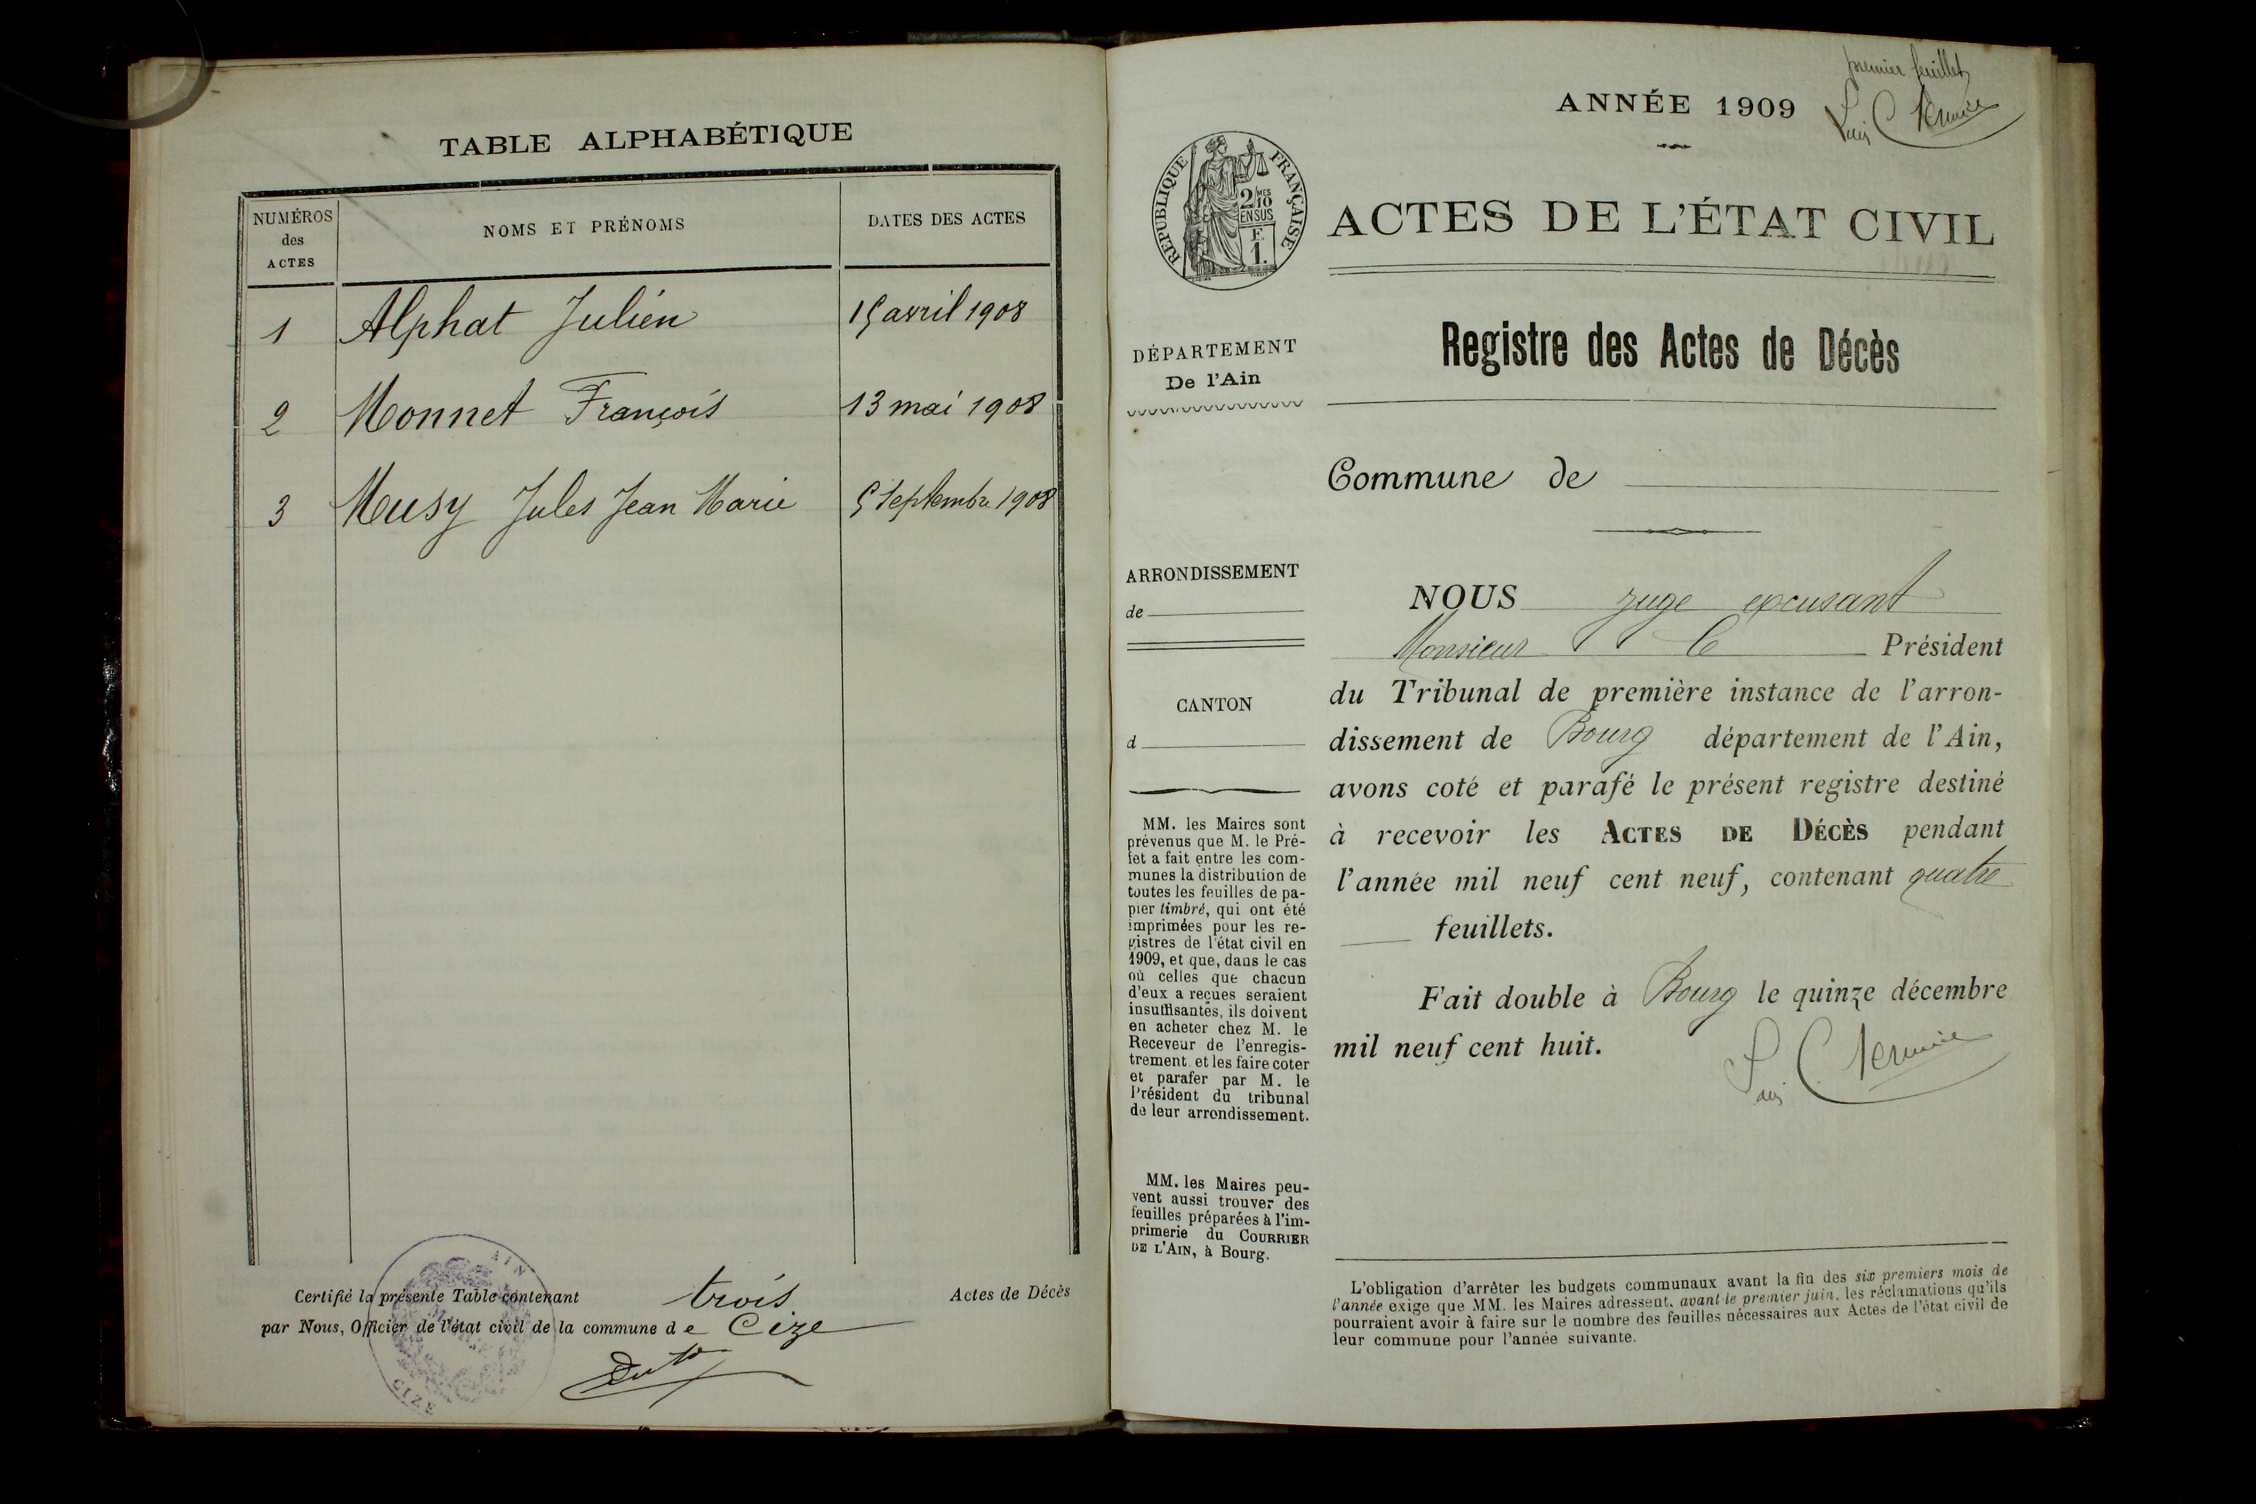 TABLE ALPHABÉTIQUE
NUMÉROS
des
ACTES
NOMS ET PRÉNOMS
DATES DES ACTES
1 Alphat Julien 15 avril 1908
2 Monnet François 13 mai 1908
3 Musy Jules Jean Marie 5 Septembre 1908
Certifié la présente Table contenant trois Actes de Décès
par Nous, Officier de l'état civil de la commune de Cize
AIN
CIZE
premier feuillet
ANNÉE 1909
RÉPUBLIQUE FRANÇAISE
2/10 MES
EN SUS
F.
1.
ACTES DE L'ÉTAT CIVIL
Registre des Actes de Décès
DÉPARTEMENT
De l'Ain
Commune de
ARRONDISSEMENT
de
CANTON
d
MM. les Maires sont
prévenus que M. le Pré-
fet a fait entre les com-
munes la distribution de
toutes les feuilles de pa-
pier timbré, qui ont été
imprimées pour les re-
gistres de l'état civil en
1909, et que, dans le cas
où celles que chacun
d'eux a reçues seraient
insuffisantes, ils doivent
en acheter chez M. le
Receveur de l'enregis-
trement et les faire coter
et parafer par M. le
Président du tribunal
de leur arrondissement.
MM. les Maires peu-
vent aussi trouver des
feuilles préparées à l'im-
primerie du COURRIER
DE L'AIN, à Bourg.
NOUS juge excusant
Monsieur le Président
du Tribunal de première instance de l'arron-
dissement de Bourg département de l'Ain,
avons coté et parafé le présent registre destiné
à recevoir les ACTES DE DÉCÈS pendant
l'année mil neuf cent neuf, contenant quatre
feuillets.
Fait double à Bourg le quinze décembre
mil neuf cent huit.
L'obligation d'arrêter les budgets communaux avant la fin des six premiers mois de
l'année exige que MM. les Maires adressent, avant le premier juin, les réclamations qu'ils
pourraient avoir à faire sur le nombre des feuilles nécessaires aux Actes de l'état civil de
leur commune pour l'année suivante.